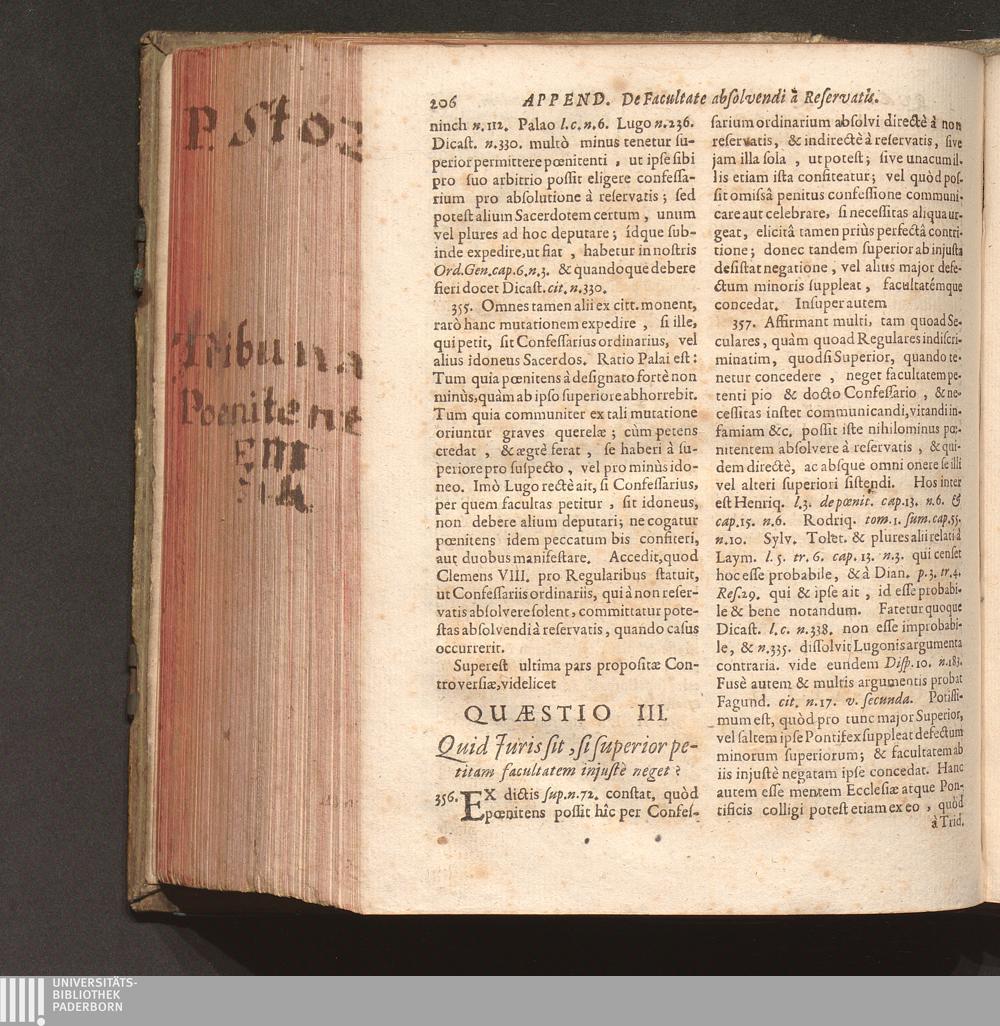 P. Stoz
Tribuna
Poenitent
206 APPEND. De Facultate absolvendi à Reservatis.
ninch n. 112. Palao l. c. n. 6. Lugo n. 236.
Dicast. n. 330. multò minus tenetur su-
perior permittere pœnitenti , ut ipse sibi
pro suo arbitrio possit eligere confessa-
rium pro absolutione à reservatis ; sed
potest alium Sacerdotem certum , unum
vel plures ad hoc deputare ; ídque sub-
inde expedire, ut fiat , habetur in nostris
Ord. Gen. cap. 6. n. 3. & quandoque debere
fieri docet Dicast. cit. n. 330.
355. Omnes tamen alii ex citt. monent,
rarò hanc mutationem expedire , si ille,
qui petit, sit Confessarius ordinarius, vel
alius idoneus Sacerdos. Ratio Palai est :
Tum quia pœnitens à designato fortè non
minùs, quàm ab ipso superiore abhorrebit.
Tum quia communiter ex tali mutatione
oriuntur graves querelæ ; cùm petens
credat , & ægrè ferat , se haberi à su-
periore pro suspecto , vel pro minùs ido-
neo. Imò Lugo rectè ait, si Confessarius,
per quem facultas petitur , sit idoneus,
non debere alium deputari; ne cogatur
pœnitens idem peccatum bis confiteri,
aut duobus manifestare. Accedit, quod
Clemens VIII. pro Regularibus statuit,
ut Confessariis ordinariis, qui à non reser-
vatis absolvere solent, committatur pote-
stas absolvendi à reservatis, quando casus
occurrerit.
Superest ultima pars propositæ Con-
troversiæ, videlicet
QUÆSTIO III.
Quid Juris sit , si superior pe-
titam facultatem injustè neget ?
356. EX dictis sup. n. 72. constat, quòd
pœnitens possit hîc per Confes-
sarium ordinarium absolvi directè à non
reservatis, & indirectè à reservatis, sive
jam illa sola , ut potest ; sive unacum il-
lis etiam ista confiteatur; vel quòd pos-
sit omissâ penitus confessione communi-
care aut celebrare, si necessitas aliqua ur-
geat, elicitâ tamen priùs perfectâ contri-
tione ; donec tandem superior ab injusta
desistat negatione , vel alius major defe-
ctum minoris suppleat , facultatémque
concedat. Insuper autem
357. Affirmant multi, tam quoad Se-
culares , quàm quoad Regulares indiscri-
minatim, quodsi Superior, quando te-
netur concedere , neget facultatem pe-
tenti pio & docto Confessario , & ne-
cessitas instet communicandi, vitandi in-
famiam &c. possit iste nihilominus pœ-
nitentem absolvere à reservatis , & qui-
dem directè, ac absque omni onere se illi
vel alteri superiori sistendi. Hos inter
est Henriq. l. 3. de pœnit. cap. 13. n. 6. &
cap. 15. n. 6. Rodriq. tom. 1. sum. cap. 55.
n. 10. Sylv. Tolet. & plures alii relati à
Laym. l. 5. tr. 6. cap. 13. n. 3. qui censet
hoc esse probabile, & à Dian. p. 3. tr. 4.
Res. 29. qui & ipse ait , id esse probabi-
le & bene notandum. Fatetur quoque
Dicast. l. c. n. 338. non esse improbabi-
le, & n. 335. dissolvit Lugonis argumenta
contraria. vide eundem Disp. 10. n. 183.
Fusè autem & multis argumentis probat
Fagund. cit. n. 17. v. secunda. Potissi-
mum est, quòd pro tunc major Superior,
vel saltem ipse Pontifex suppleat defectum
minorum superiorum ; & facultatem ab
iis injustè negatam ipse concedat. Hanc
autem esse mentem Ecclesiæ atque Pon-
tificis colligi potest etiam ex eo , quòd
à Trid.
UNIVERSITÄTS-
BIBLIOTHEK
PADERBORN